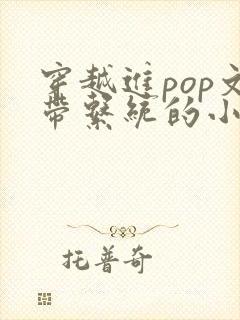 穿越進pop文
帶繫統的小
托普奇